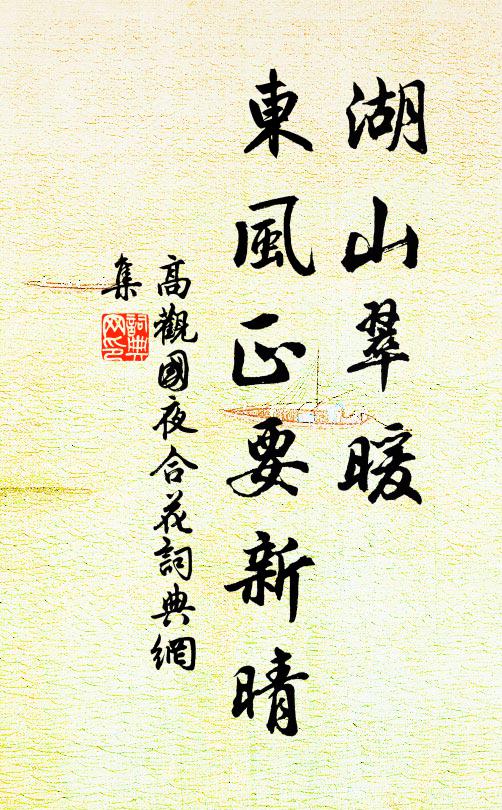 湖山翠暖
東風正要新晴
高觀國夜合花詞典網
集
詞典
网印